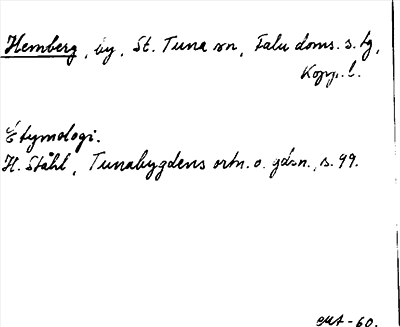 Hemberg, by, St. Tuna sn, Falu doms. s. tg,
Kopp. l.
Etymologi.
H. Ståhl, Tunabygdens ortn. o. gdsn., s. 99.
-60.